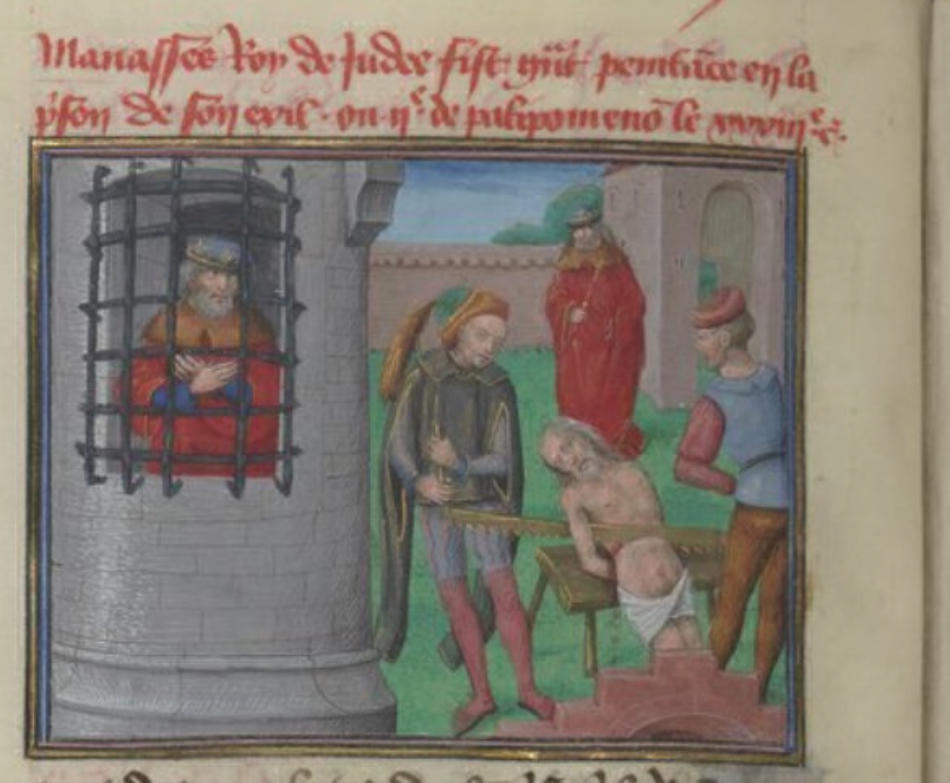 Manasses Roy de Judee fist gn̄t penitāce en la
p̄son de son exil. ou ijᵉ de palipomenō le xxxiijᵉ c.